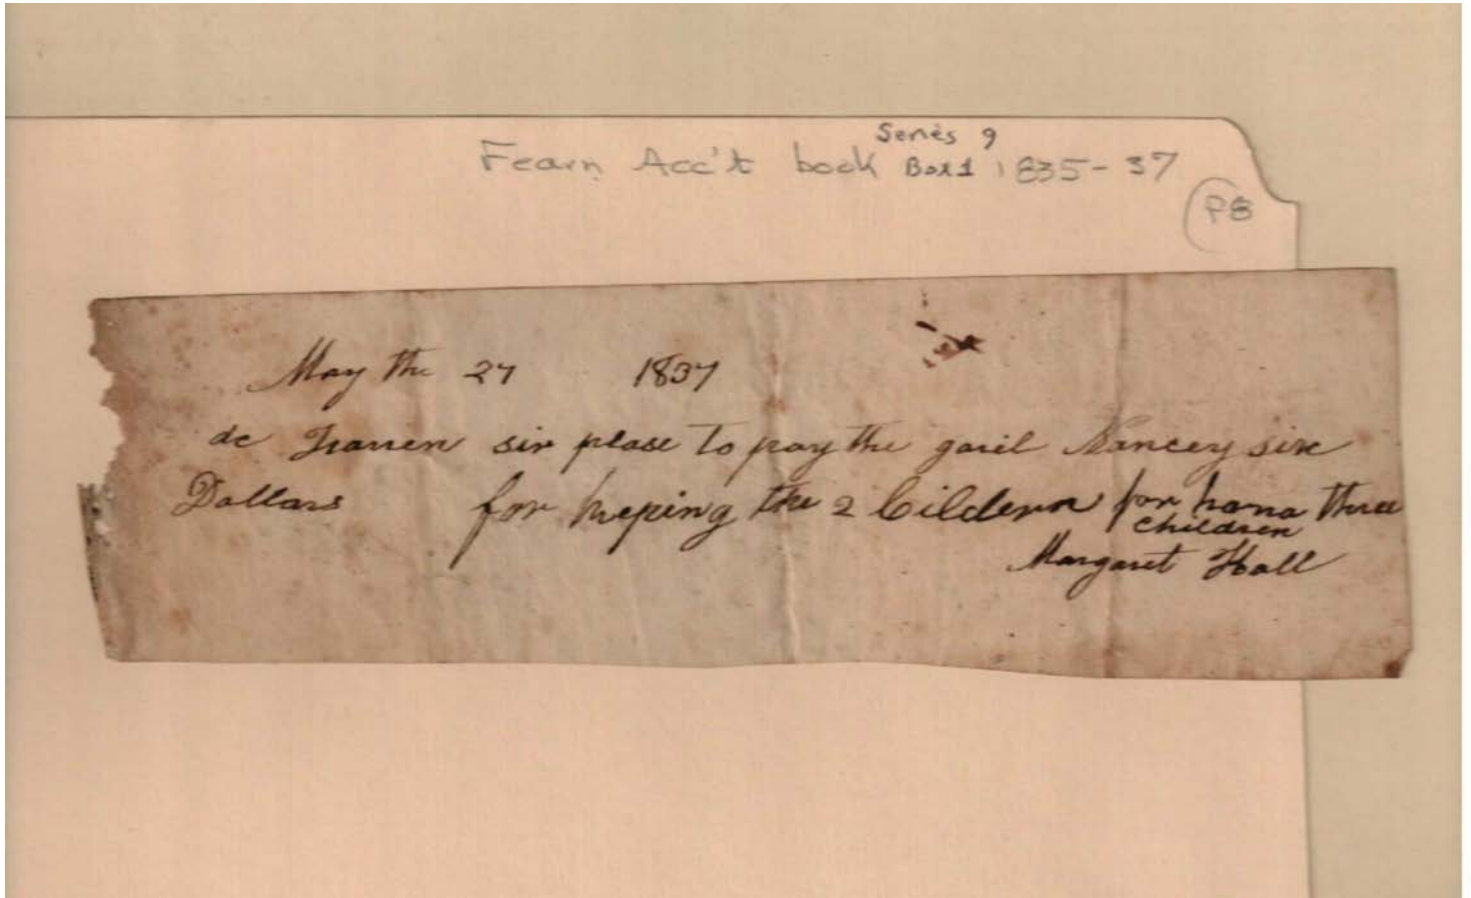 Series 9
Fearn Acc't book Box 1 1835-37
P8
May the 27 1837
sir plase to pay the garil Nancey six
Dollars for keping the 2 Cildern for hana three
children
Margaret Hall